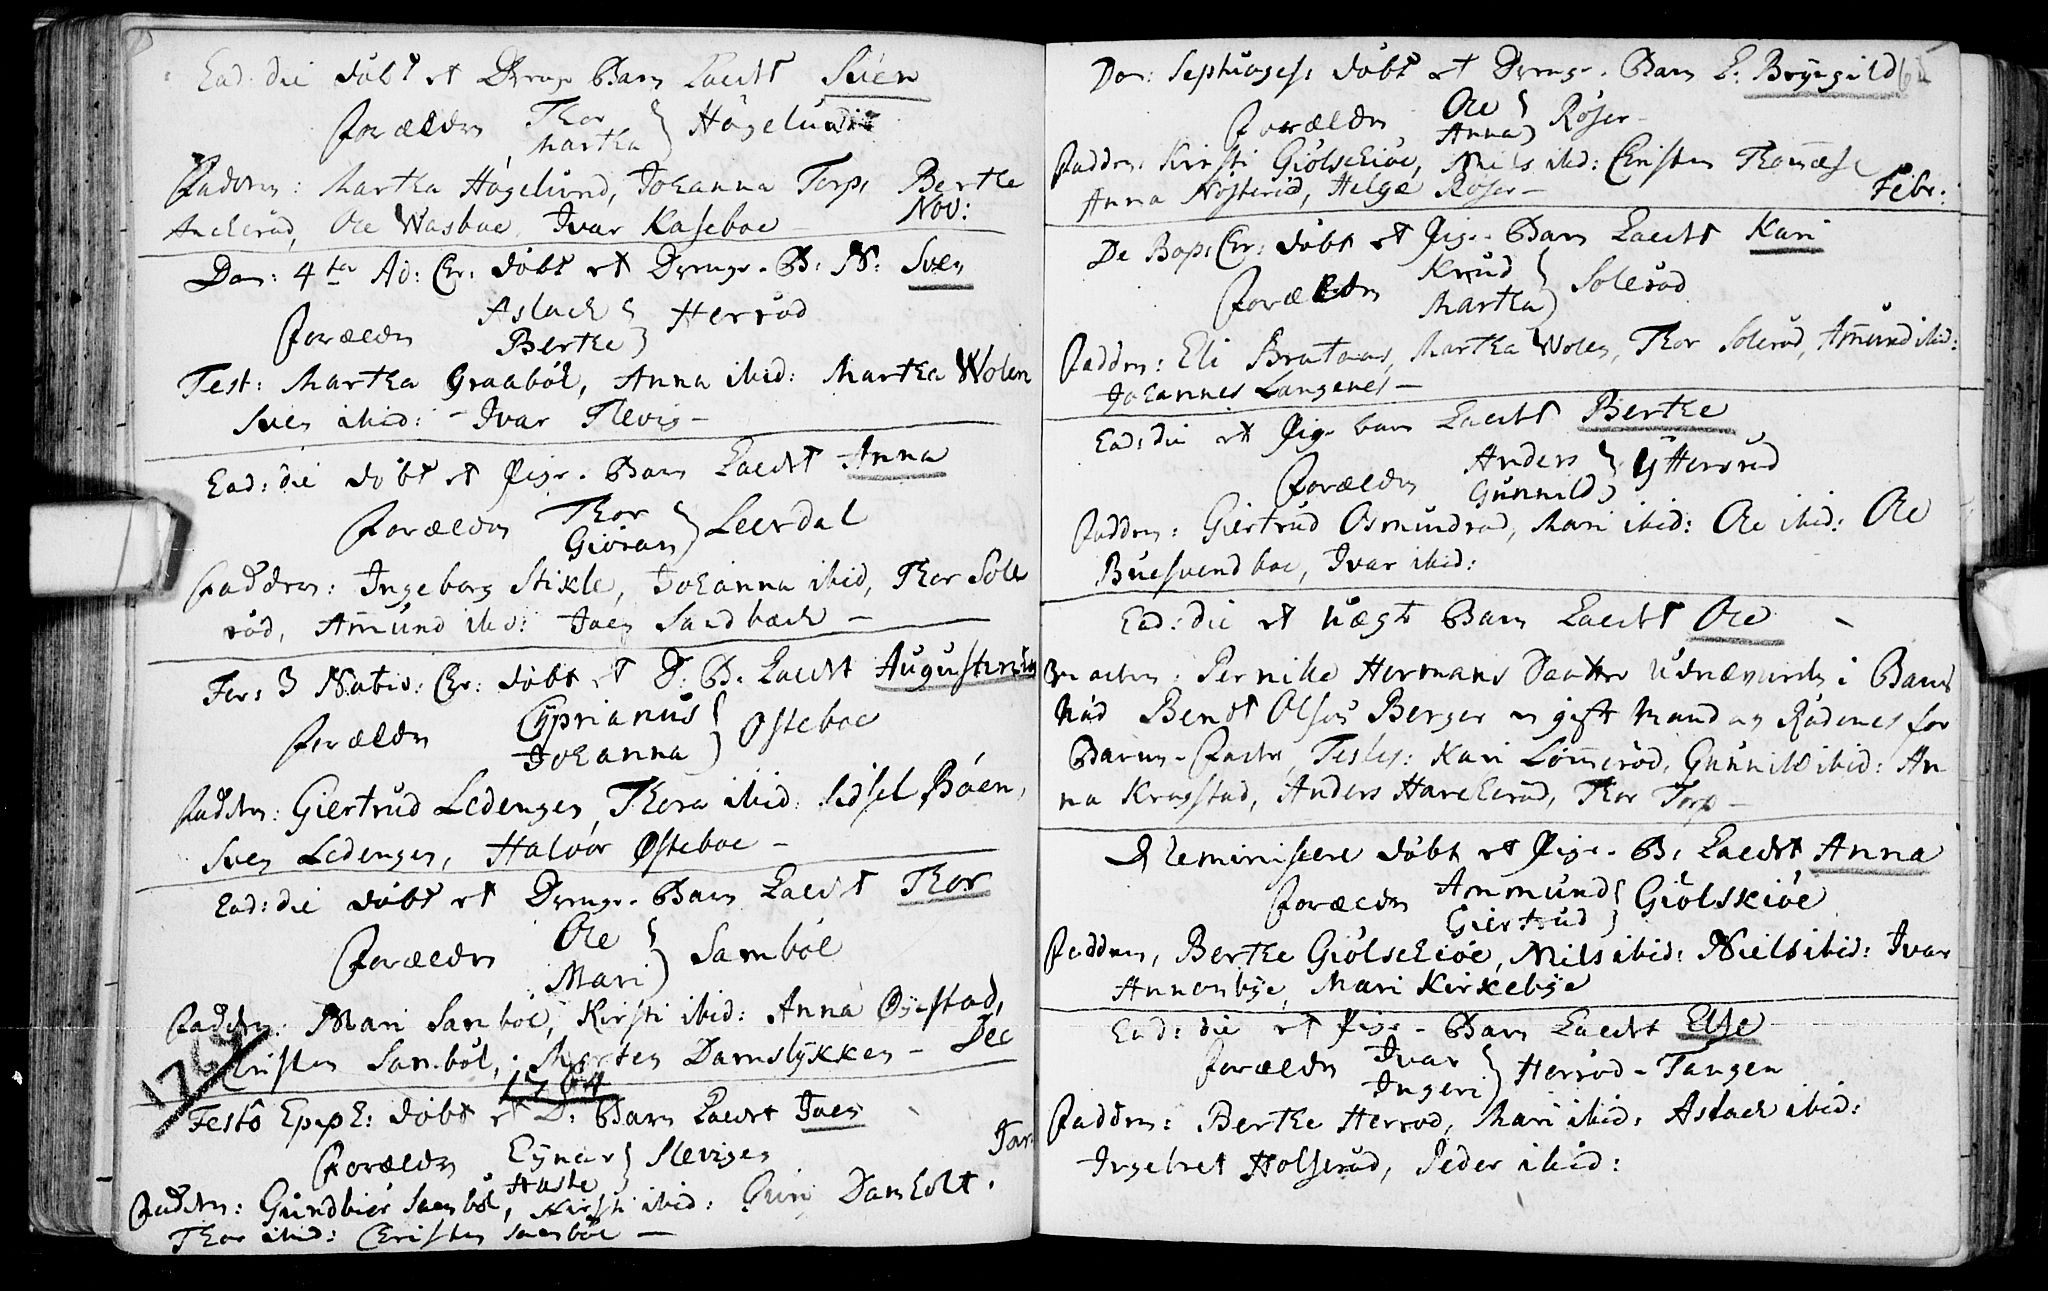 Ead: die döbt et Drenge Barn Kaldt Svend
Forældre Thor
Martha } Högelund
Faddere: Martha Högelund, Johanna Torp, Berthe
Ole Wasboe, Ivar Kaseboe Nov:
Dom: 4ta Ad: Chr: döbt et Drenge-B: N: Sven
Forældre Aslach
Berthe } Herröd
Test: Martha Graaböl, Anna ibid: Martha Wolen
Sven ibid: - Ivar Klevis -
Ead: die döbt et Pige-Barn Kaldt Anna
Forældre Thor
Giöran } Leerdal
Faddere: Ingeborg Stikle, Johanna ibid, Thor Sole
röd, Amund ibid: Joen Sandbæch -
Fer: 3 Nativ: Chr: döbt et D: B. Kaldt Augustinus
Forældre Cyprianus
Johanna } Østeboe
Faddere: Giertrud Ledengen, Thora ibid: Sidsel Böen,
Sven Ledengen, Halvor Østeboe -
Ead: die döbt et Drenge-Barn Kaldt Thor
Forældre Ole
Mari } Samböl
Faddere: Mari Samböl, Kirsti ibid: Anna Øystad,
Christen Samböl, Morten Damstykken - Dec
1764
1764
Festo Epiph: döbt et D: Barn Kaldt Joen
Jan:
Forældre Eynar
Aaste } Slevigen
Faddere: Gundbiör Samböl, Kirsti ibid: Damholt.
Thor ibid: Christen Samböl -
Dom: Septuages: döbt et Drenge-Barn K: Bryngild
Forældre Ole
Anna } Röser -
Faddere: Kirsti Giölschiöe, Niels ibid: Christen Thomæs:
Anna Nosteröd, Helge Röser - Febr:
De Bap: Chr: döbt et Pige-Barn Kaldt Kari
Forældre Knud
Martha } Soleröd
Faddere: Eli Brataas, Martha Wolen, Thor Soleröd, Amund ibid:
Johannes Langenes -
Ead: die et Pige barn Kaldt Berthe
Forældre Anders
Gunnild } Ytteröd
Faddere: Giertrud Osmundröd, Mari ibid: Ole ibid: Ole
Buesvendboe, Ivar ibid:
Ead: die et uægte Barn Kaldt Ole -
Moderen: Pernille Hermans Daatter udnævnte i Barns
Nöd Bendt Olsøn Berger en gift Mand og Rådenes for
Barne-Fader, Testes: Kari Lömmeröd, Gunnild ibid: An
na Kragstad, Anders Harcheröd, Thor Torp -
D Reminiscere döbt et Pige-B: Kaldt Anna
Forældre Ammund
Giertrud } Giölskiöe
Faddere, Berthe Giölschiöe, Niels ibid: Niels ibid: Ivar
Annonbye, Mari Kirkebye
Ead: die et Pige-Barn Kaldt Else
Forældre Ivar
Ingeri } Herröd-Tangen
Faddere: Berthe Herröd, Mari ibid: Aslach ibid:
Ingebret Holseröd, Peder ibid: